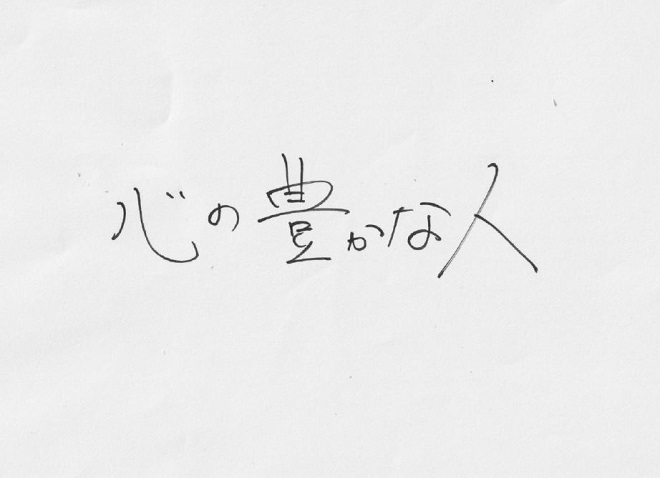 心の豊かな人